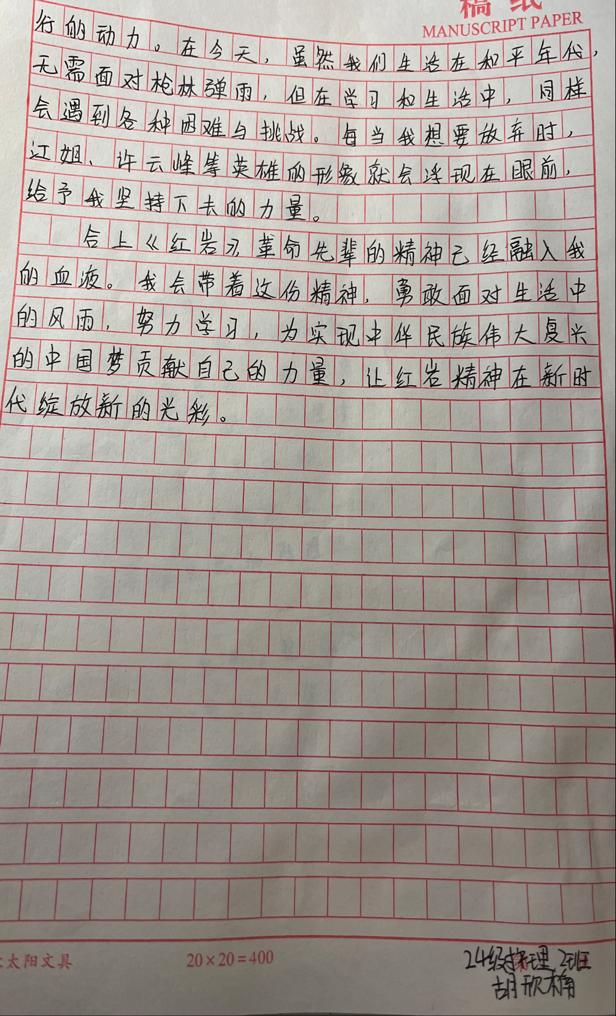 稿纸
MANUSCRIPT PAPER
行的动力。在今天，虽然我们生活在和平年代，
无需面对枪林弹雨，但在学习和生活中，同样
会遇到各种困难与挑战。每当我想要放弃时，
江姐、许云峰等英雄的形象就会浮现在眼前，
给予我坚持下去的力量。
合上《红岩》，革命先辈的精神已经融入我
的血液。我会带着这份精神，勇敢面对生活中
的风雨，努力学习，为实现中华民族伟大复兴
的中国梦贡献自己的力量，让红岩精神在新时
代绽放新的光彩。
太阳文具 20×20=400
24级 理 2班
胡欣楠